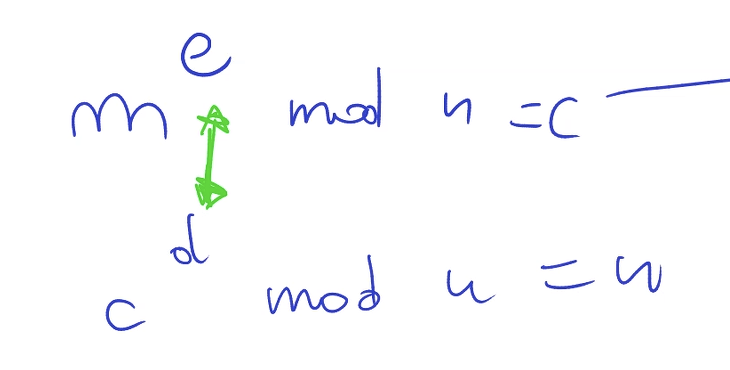 m^e mod n = c
c^d mod n = m